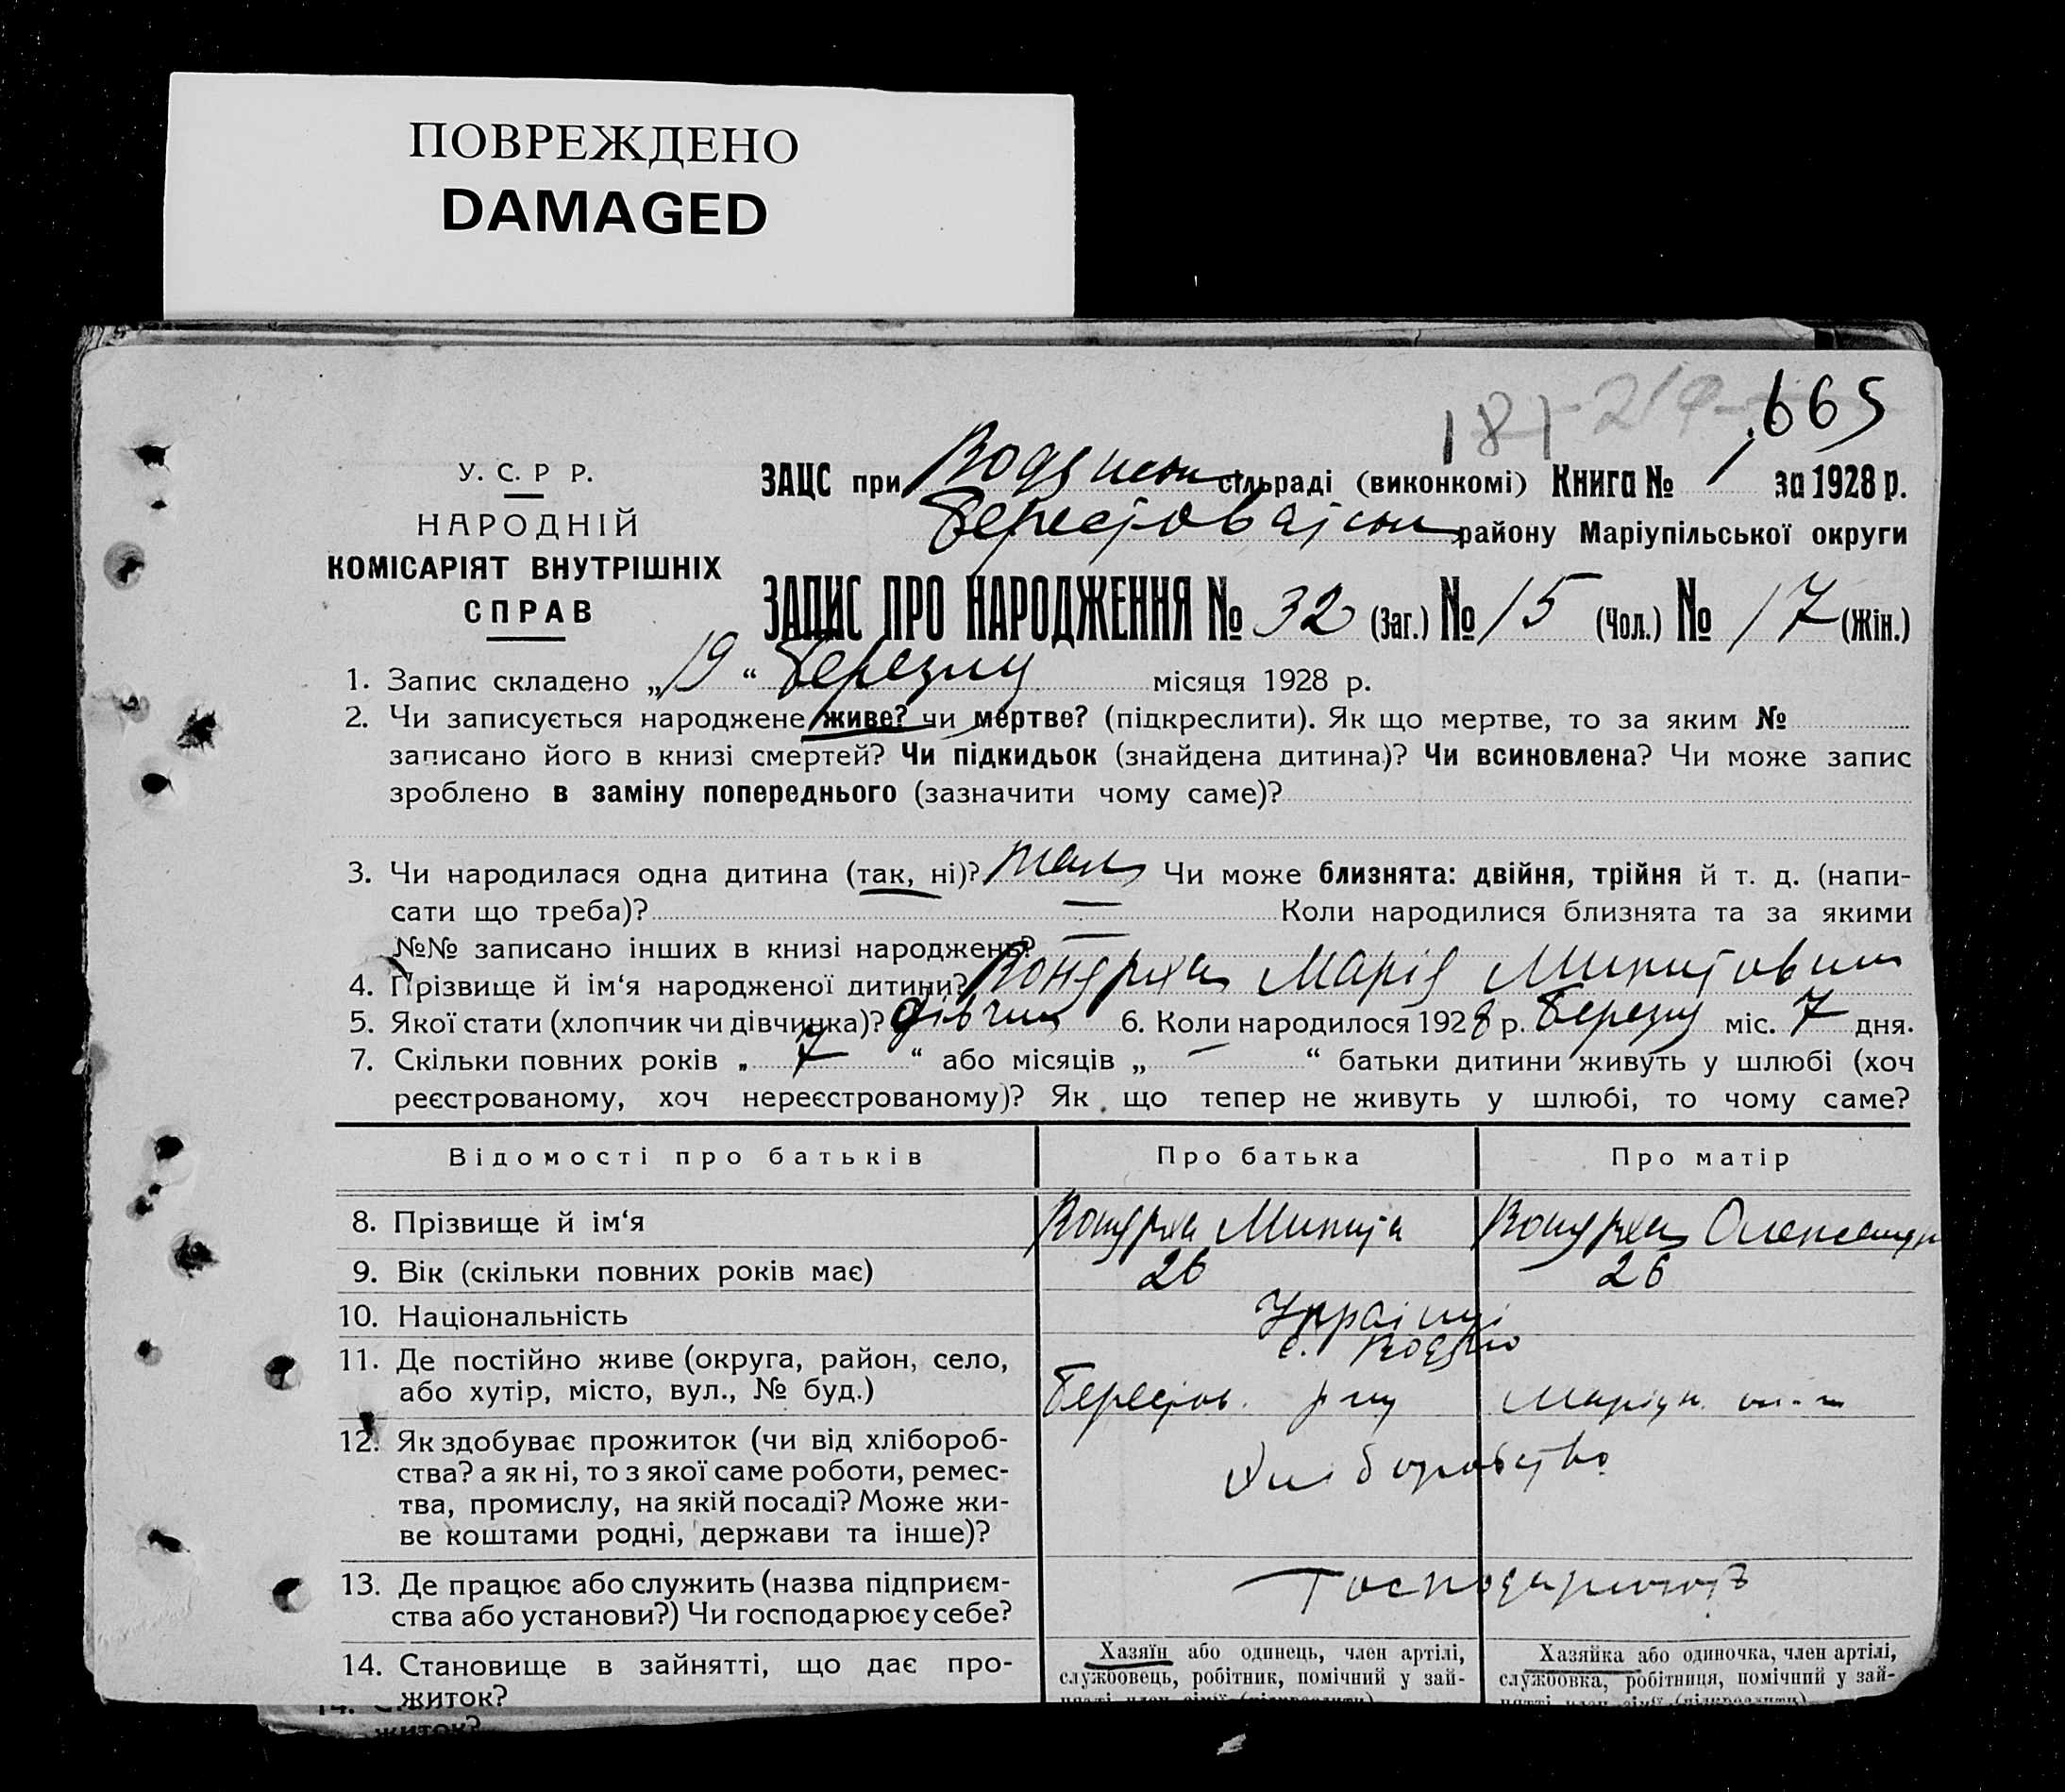 ПОВРЕЖДЕНО
DAMAGED
181 - 219 665
У. С. Р Р.
НАРОДНІЙ
КОМІСАРІЯТ ВНУТРІШНІХ
СПРАВ
ЗАЦС при сільраді (виконкомі) Книга № 1 за 1928 р.
району Маріупільської округи
ЗАПИС ПРО НАРОДЖЕННЯ № 32 (Заг.) № 15 (Чол.) № 17 (Жін.)
1. Запис складено „19“ березня місяця 1928 р.
2. Чи записується народжене живе? чи мертве? (підкреслити). Як що мертве, то за яким №
записано його в книзі смертей? Чи підкидьок (знайдена дитина)? Чи всиновлена? Чи може запис
зроблено в заміну попереднього (зазначити чому саме)?
3. Чи народилася одна дитина (так, ні)? так Чи може близнята: двійня, трійня й т. д. (напи-
сати що треба)? — Коли народилися близнята та за якими
№№ записано інших в книзі народжень? —
4. Прізвище й ім‘я народженої дитини? Марія
5. Якої стати (хлопчик чи дівчинка)? дівчин 6. Коли народилося 1928 р. березня міс. 7 дня.
7. Скільки повних років „ 7 “ або місяців „ — “ батьки дитини живуть у шлюбі (хоч
реєстрованому, хоч нереєстрованому)? Як що тепер не живуть у шлюбі, то чому саме?
Відомості про батьків Про батька Про матір
8. Прізвище й ім‘я Микита
9. Вік (скільки повних років має) 26 26
10. Національність Українці
11. Де постійно живе (округа, район, село, с.
або хутір, місто, вул., № буд.) Берестов. р-ну Маріуп.
12. Як здобуває прожиток (чи від хлібороб-
ства? а як ні, то з якої саме роботи, ремес- Хліборобство
тва, промислу, на якій посаді? Може жи-
ве коштами родні, держави та інше)?
13. Де працює або служить (назва підприєм-
ства або установи?) Чи господарює у себе?
14. Становище в зайнятті, що дає про- Хазяїн або одинець, член артілі, Хазяйка або одиночка, член артілі,
житок? службовець, робітник, помічний у зай- службовка, робітниця, помічний у зай-
нятті член сім‘ї (підкреслити) нятті член сім‘ї (підкреслити)
житок?